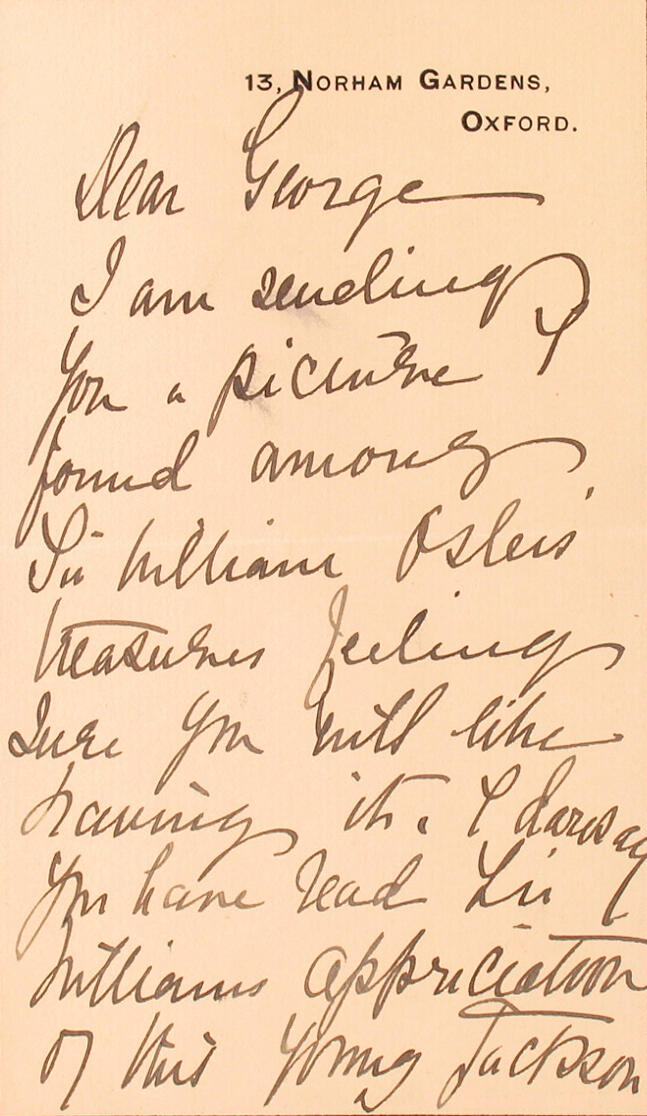 13, NORHAM GARDENS,
OXFORD.
Dear George
I am sending
you a picture I
found among
Sir William Osler's
treasures feeling
sure you will like
having it. I daresay
you have read Sir
Williams appreciation
of this young Jackson